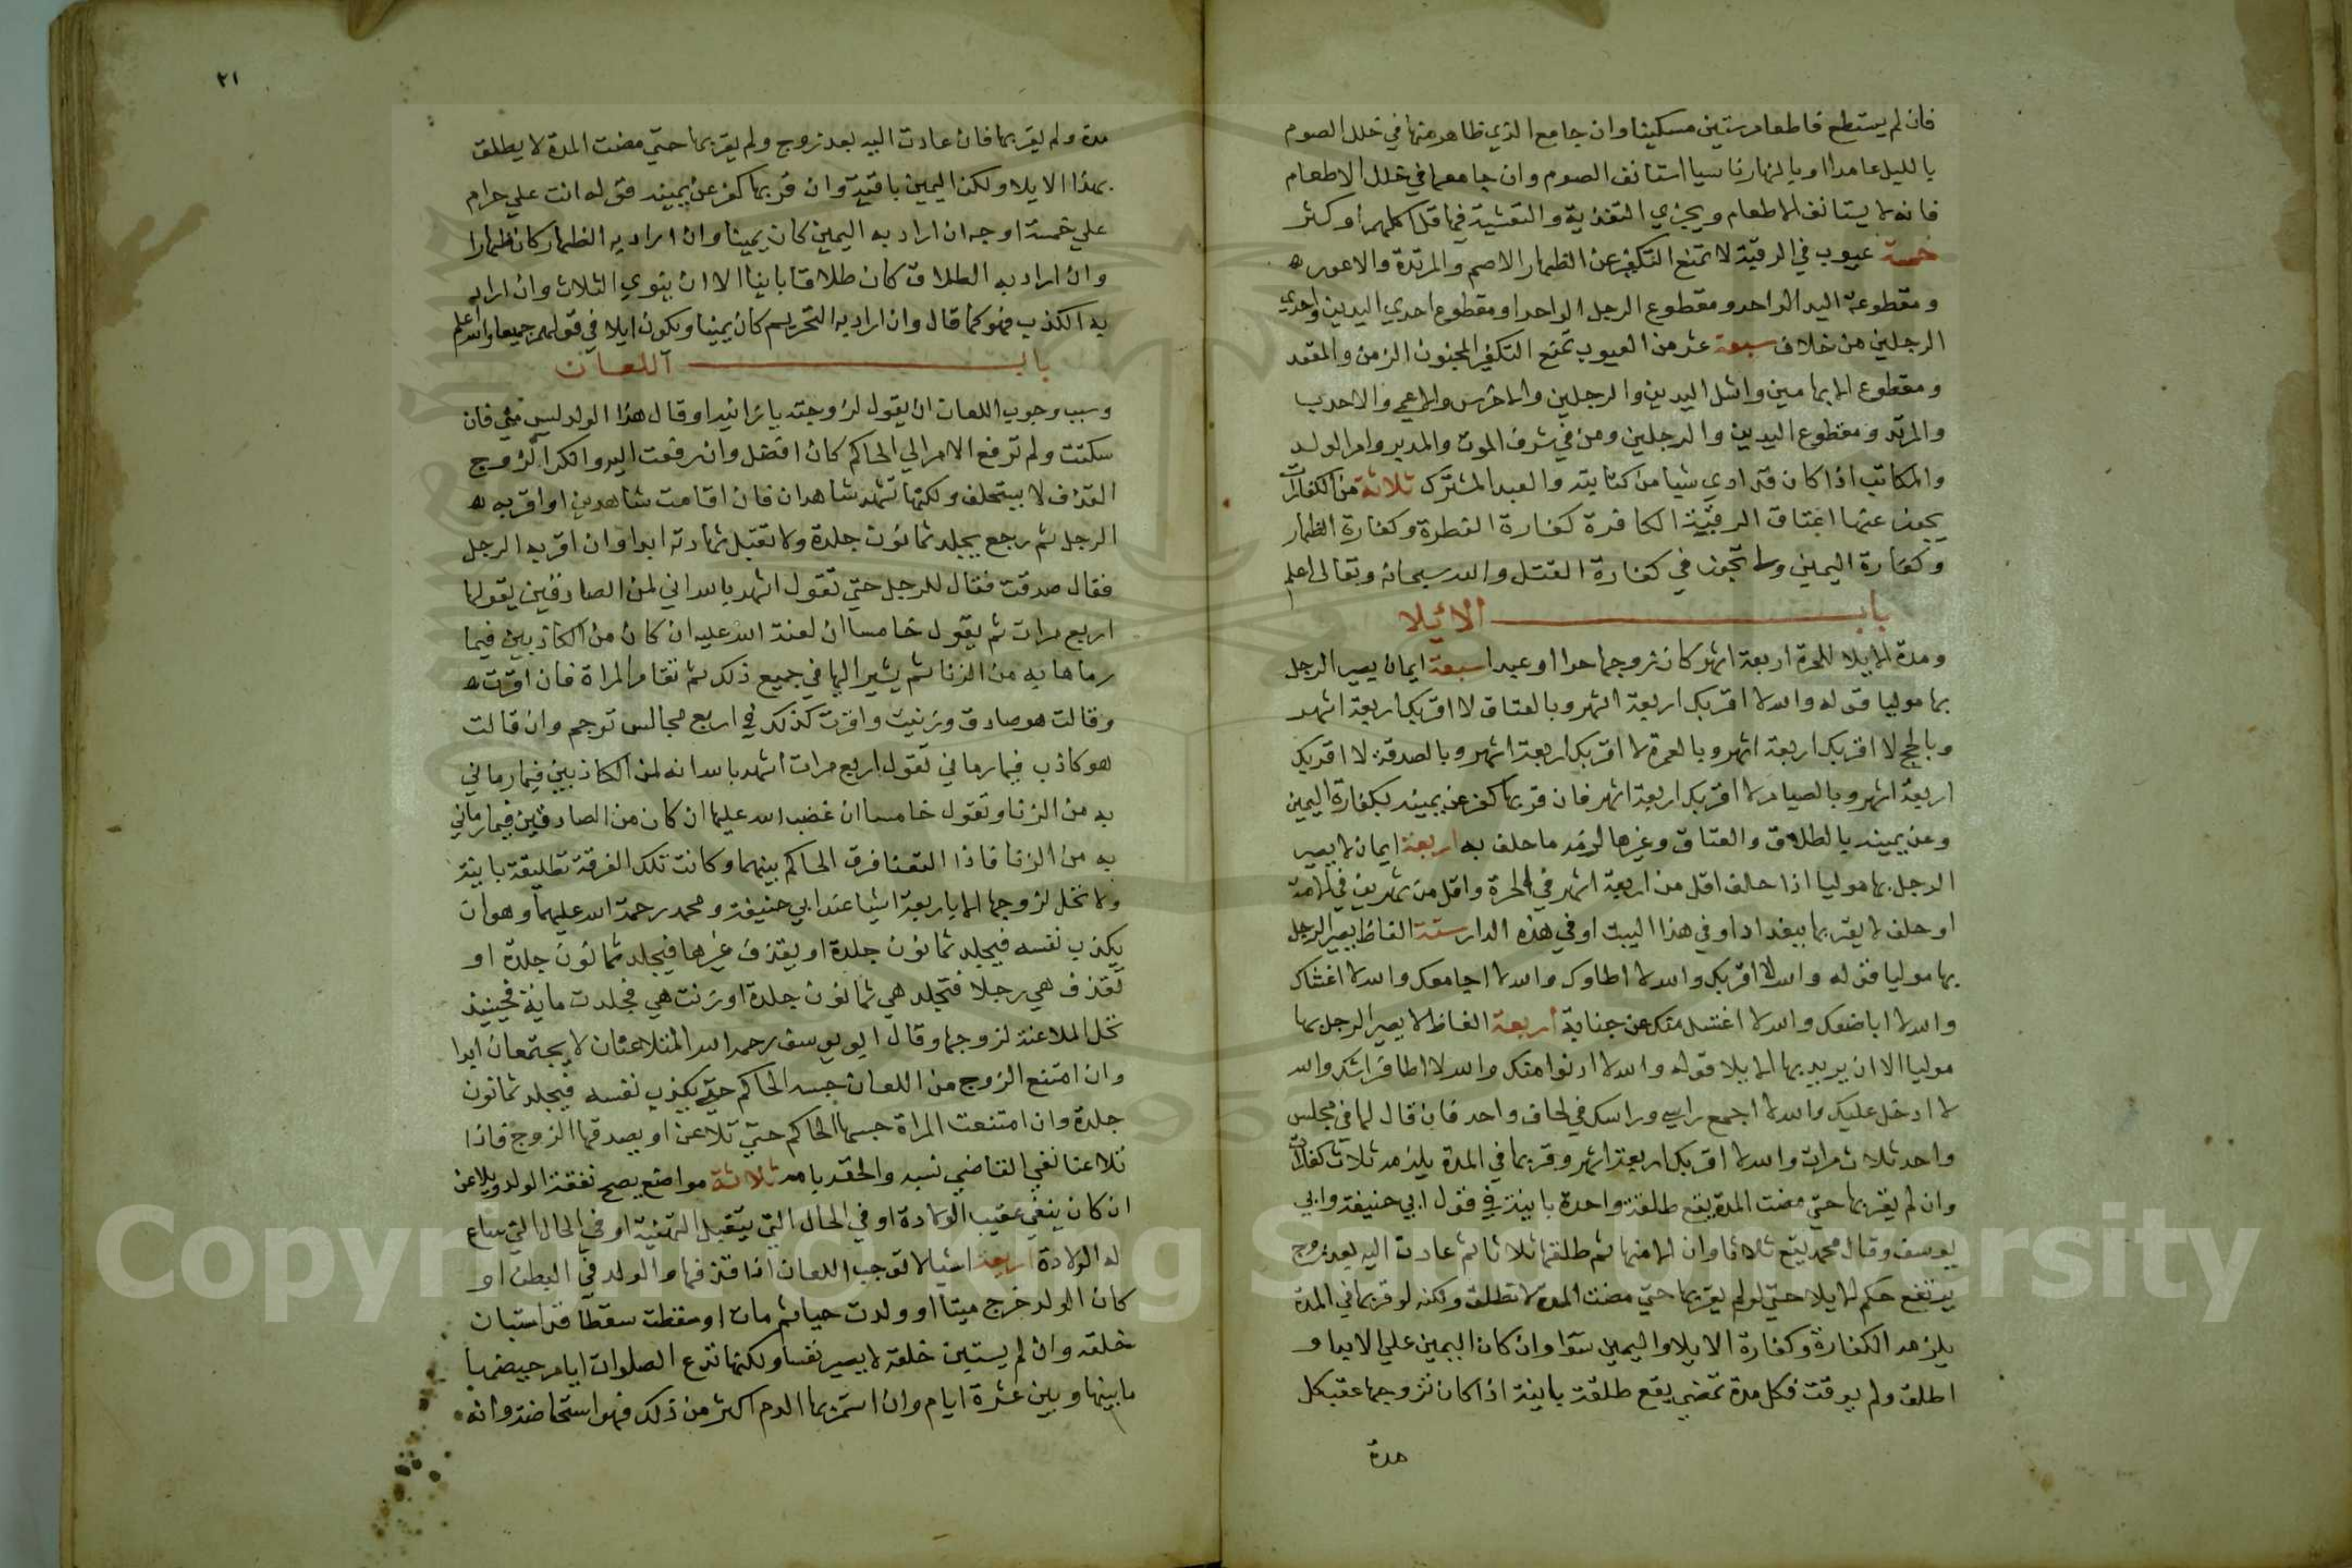 فان لم يستطع فاطعام ستين مسكينا وان جامع الذي ظاهر منها في خلل الصوم
بالليل عامدا او بالنهار ناسيا استانف الصوم وان جامعها في خلل الاطعام
فانه لا يستانف الاطعام ويجزي التغذية والتعشية فيما قل اكلهم او كثر
خمسة عيوب في الرقبة لا تمنع التكفير عن الظهار الاصم والمرتدة والاعور
ومقطوعة اليد الواحد ومقطوع الرجل الواحد او مقطوع احدي اليدين واحدي
الرجلين من خلاف سبعة عشر من العيوب تمنع التكفير المجنون الزمن والمقعد
ومقطوع الابهامين واشل اليدين والرجلين والاخرس والاعمي والاحدب
والمرتد ومقطوع اليدين والرجلين ومن في شرف الموت والمدبر وام الولد
والمكاتب اذا كان قد ادي شيا من كتابته والعبد المشترك ثلاثة من الكفارات
يجوز عنها اعتاق الرقبة الكافرة كفارة الفطرة وكفارة الظهار
وكفارة اليمين ولا تجوز في كفارة القتل والله سبحانه وتعالى اعلم
باب الائيلا
ومدة الايلا للحرة اربعة اشهر كان زوجها حرا او عبدا سبعة ايمان يصير الرجل
بها موليا قوله والله لا اقربك اربعة اشهر وبالعتاق لا اقربك اربعة اشهر
وبالحج لا اقربك اربعة اشهر وبالعمرة لا اقربك اربعة اشهر وبالصدقة لا اقربك
اربعة اشهر وبالصيام لا اقربك اربعة اشهر فان قربها كفر عن يمينه بكفارة اليمين
وعن يمينه بالطلاق والعتاق وغيرها لزمه ما حلف به اربعة ايمان لا يصير
الرجل بها موليا اذا حالف اقل من اربعة اشهر في الحرة واقل من شهرين في الامة
او حلف لا يقربها ببغداد او في هذا البيت او في هذه الدار ستة الفاظ يصير الرجل
بها موليا قوله والله لا اقربك والله لا اطاوك والله لا اجامعك والله لا اغشاك
والله لا اباضعك والله لا اغتسل منك عن جنابة اربعة الفاظ لا يصير الرجل بها
موليا الا ان يريد بها الايلا قوله والله لا ادنوا منك والله لا اطا فراشك والله
لا ادخل عليك والله لا اجمع راسي وراسك في لحاف واحد فان قال لها في مجلس
واحد ثلاث مرات والله لا اقربك اربعة اشهر وقربها في المدة يلزمه ثلاث كفارات
وان لم يقربها حتي مضت المدة يقع طلقة واحدة باينة في قول ابي حنيفة وابي
يوسف وقال محمد يقع ثلاثا وان الا منها ثم طلقها ثلاثا ثم عادت اليه بعد زوج
يرتفع حكم الايلا حتي لو لم يقربها حتي مضت المدة لا تطلق ولكنه لو قربها في المدة
يلزمه الكفارة وكفارة الايلا واليمين سوا وان كان اليمين علي الابد او
اطلق ولم يوقت فكل مدة تمضي يقع طلقة باينة اذا كان تزوجها عقب كل
مدة
٢١
مدة ولم يقربها فان عادت اليه بعد زوج ولم يقربها حتي مضت المدة لا يطلق
بهذا الايلا ولكن اليمين باقية وان قربها كفر عن يمينه قوله انت علي حرام
علي خمسة اوجه ان اراد به اليمين كان يمينا وان اراد به الظهار كان ظهارا
وان اراد به الطلاق كان طلاقا باينا الا ان ينوي الثلاث وان اراد
به الكذب فهو كما قال وان اراد به التحريم كان يمينا ويكون ايلا في قولهم جميعا والله اعلم
باب اللعان
وسبب وجوب اللعان ان يقول لزوجته يا زانية او قال هذا الولد ليس مني فان
سكتت ولم ترفع الامر الي الحاكم كان افضل وان رفعت اليه وانكر الزوج
القذف لا يستحلف ولكنها تشهد شاهدان فان اقامت شاهدين او اقر به
الرجل ثم رجع يجلد ثمانون جلدة ولا تقبل شهادته ابدا وان اقر به الرجل
فقال صدقت فقال للرجل حتي تقول اشهد بالله اني لمن الصادقين يقولها
اربع مرات ثم يقول خامسا ان لعنة الله عليه ان كان من الكاذبين فيما
رماها به من الزنا ثم يشير اليها في جميع ذلك ثم تقام المراة فان اقرت
وقالت هو صادق وزنيت واقرت كذلك في اربع مجالس ترجم وان قالت
هو كاذب فيما رماني تقول اربع مرات اشهد بالله انه لمن الكاذبين فيما رماني
به من الزنا وتقول خامسا ان غضب الله عليها ان كان من الصادقين فيما رماني
به من الزنا فاذا التعنا فرق الحاكم بينهما وكانت تلك الفرقة تطليقة باينة
ولا تحل لزوجها الا باربعة اشيا عند ابي حنيفة ومحمد رحمة الله عليهما وهو ان
يكذب نفسه فيجلد ثمانون جلدة او يقذف غيرها فيجلد ثمانون جلدة او
تقذف هي رجلا فتجلد هي ثمانون جلدة او زنت هي فجلدت ماية فحينيذ
تحل الملاعنة لزوجها وقال ابو يوسف رحمه الله المتلاعنان لا يجتمعان ابدا
وان امتنع الزوج من اللعان حبسه الحاكم حتي يكذب نفسه فيجلد ثمانون
جلدة وان امتنعت المراة حبسها الحاكم حتي تلاعن او يصدقها الزوج فاذا
تلاعنا نفي القاضي نسبه والحقه بامه ثلاثة مواضع يصح نفقة الولد ويلاعن
ان كان ينفي عقيب الولادة او في الحال التي يتقبل التهنية او في الحال التي يبتاع
له الولادة اربعة اشيا لا توجب اللعان اذا قذفها والولد في البطن او
كان الولد خرج ميتا او ولدت حيا ثم مات او سقطت سقطا قد استبان
خلقه وان لم يستبين خلقه لا يصير نفسا ولكنها تدع الصلوات ايام حيضها
ما بينها وبين عشرة ايام وان استمر بها الدم اكثر من ذلك فهو استحاضة وانه
Copyright © King Saud University